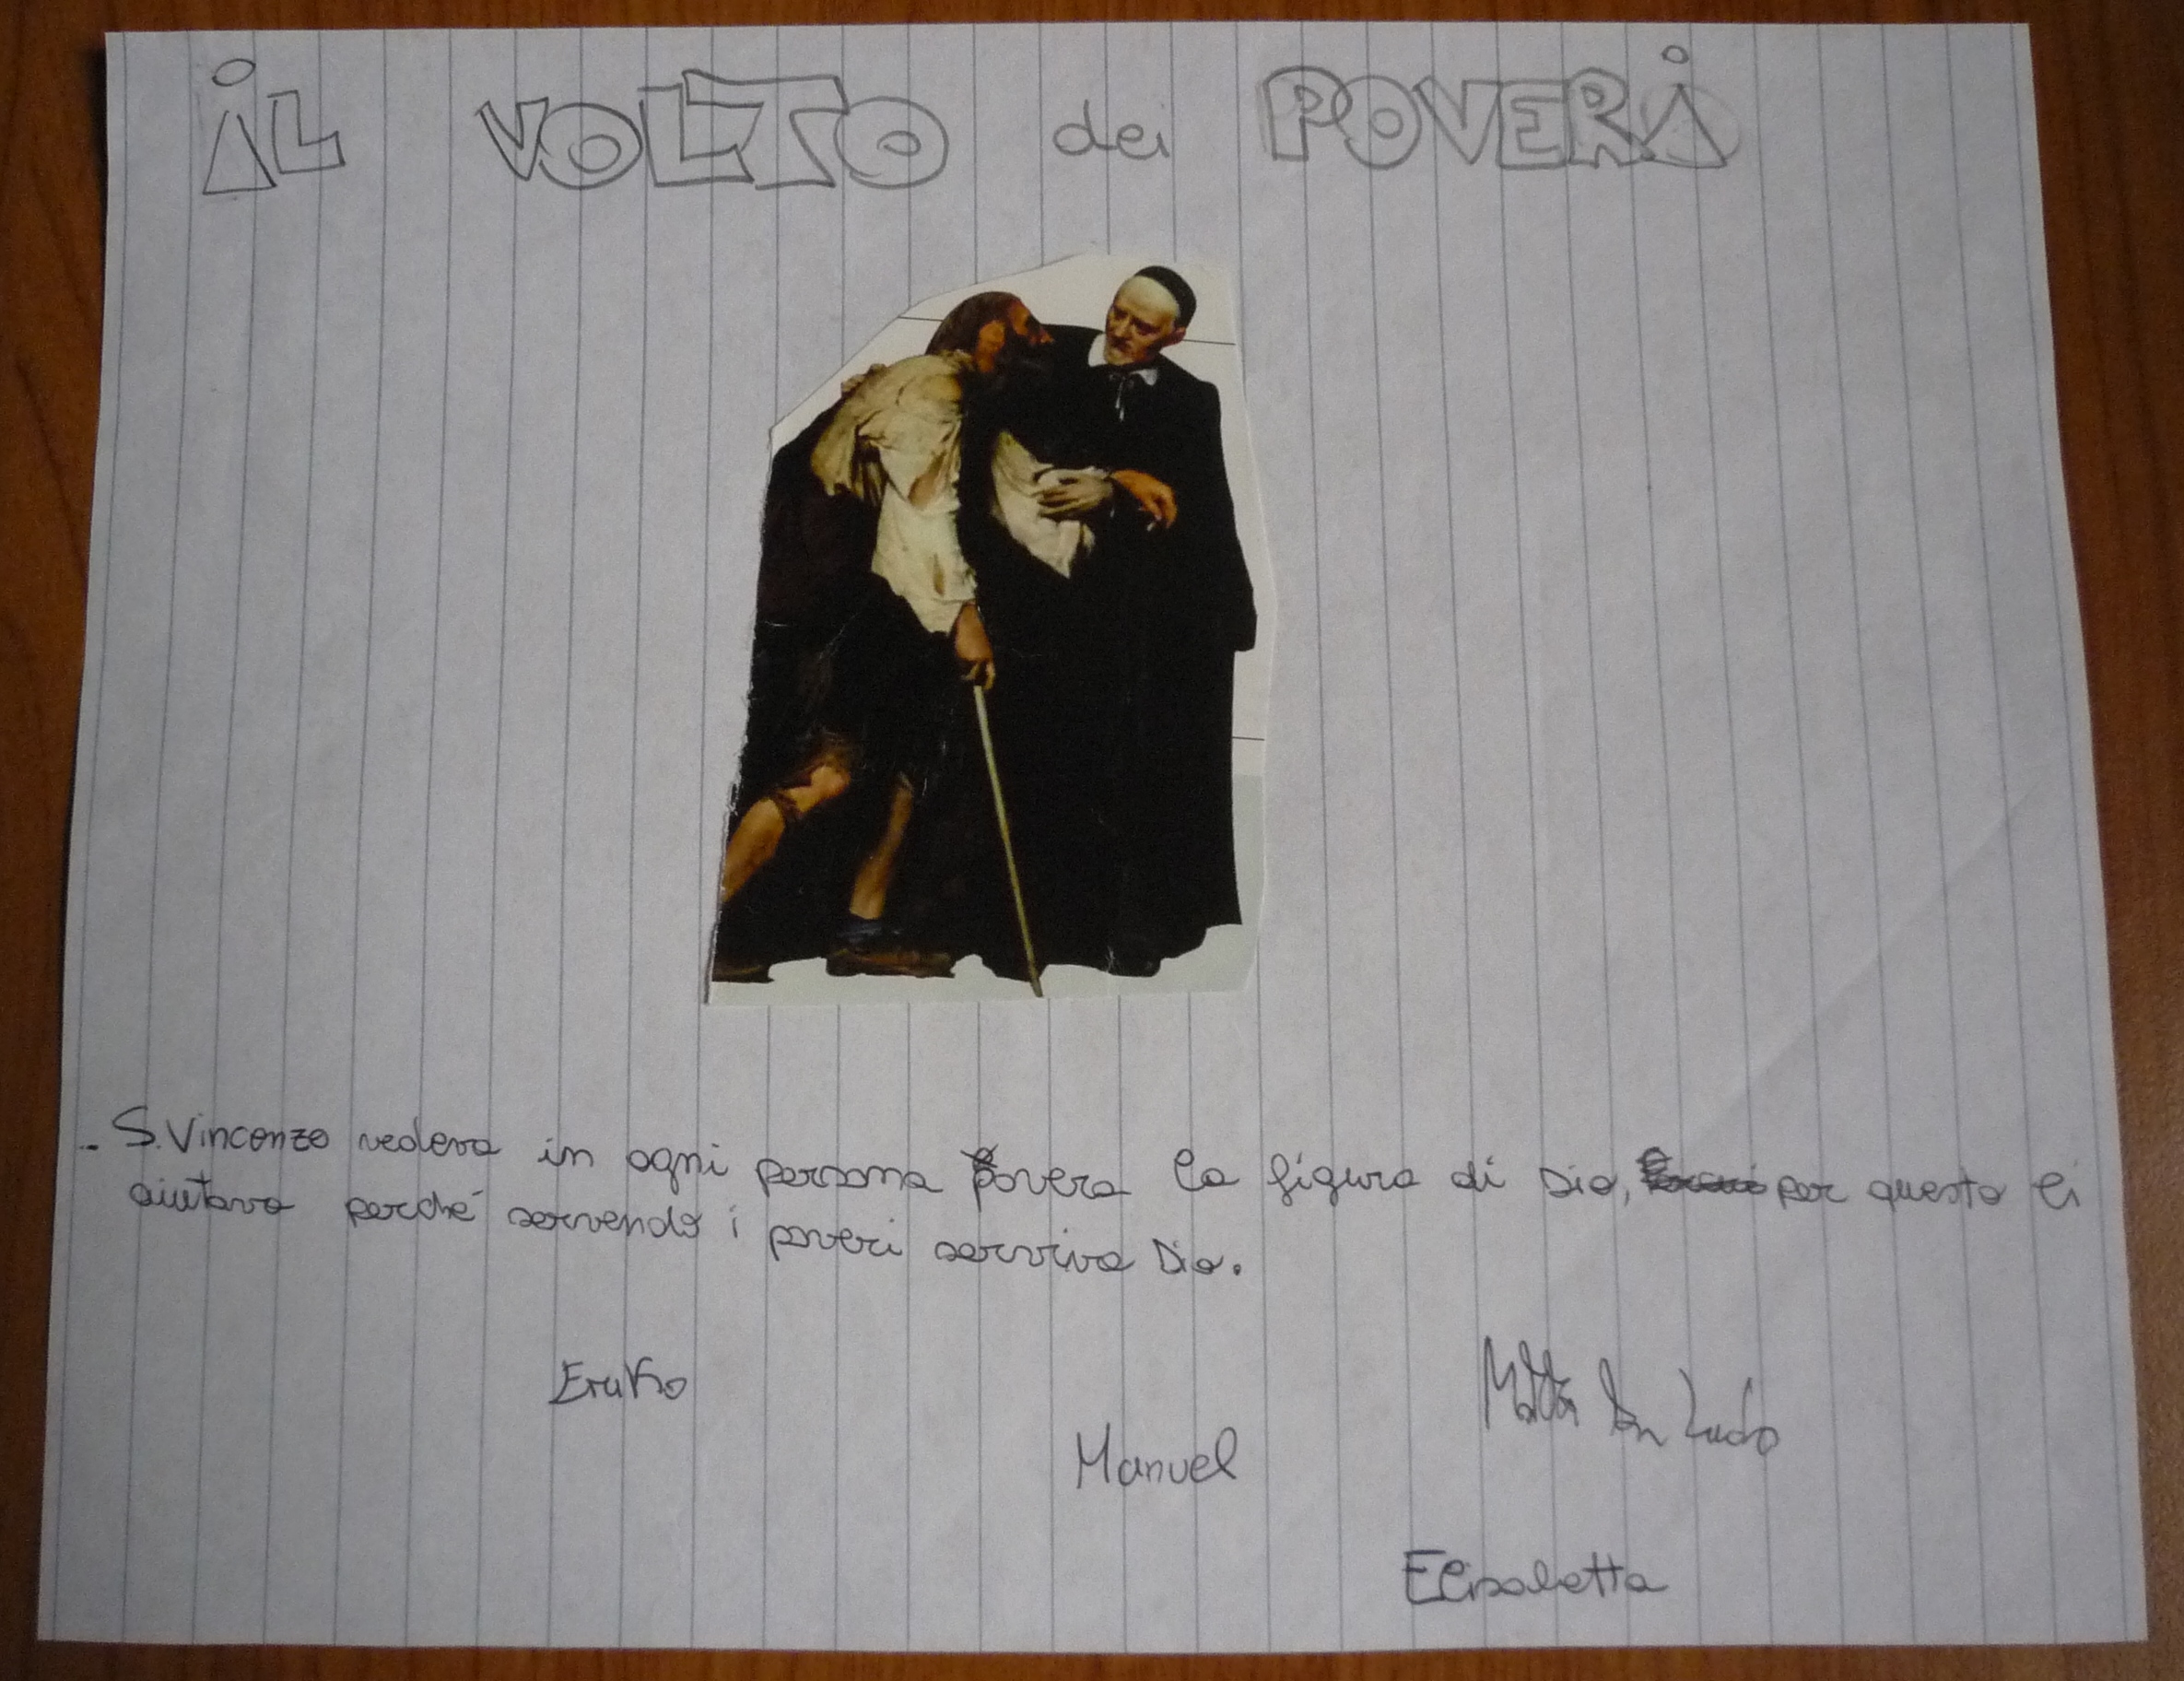 iL VOLTO dei POVERi
- S. Vincenzo vedeva in ogni persona povera la figura di Dio, per questo li
aiutava perché servendo i poveri serviva Dio.
Manuel
Elisabetta